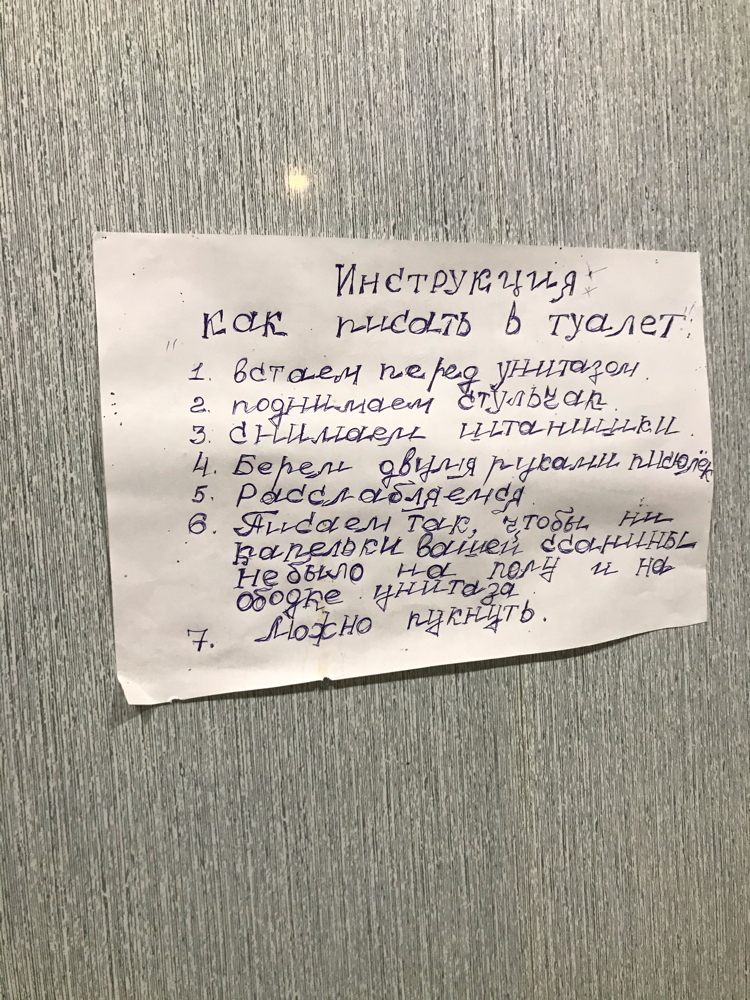 Инструкция
"как писать в туалет".
1. встаем перед унитазом.
2. поднимаем стульчак.
3. снимаем штанишки.
4. Берем двумя руками писюлёк
5. Расслабляемся.
6. Писаем так, чтобы ни
капельки вашей ссанины
не было на полу и на
ободке унитаза.
7. Можно пукнуть.